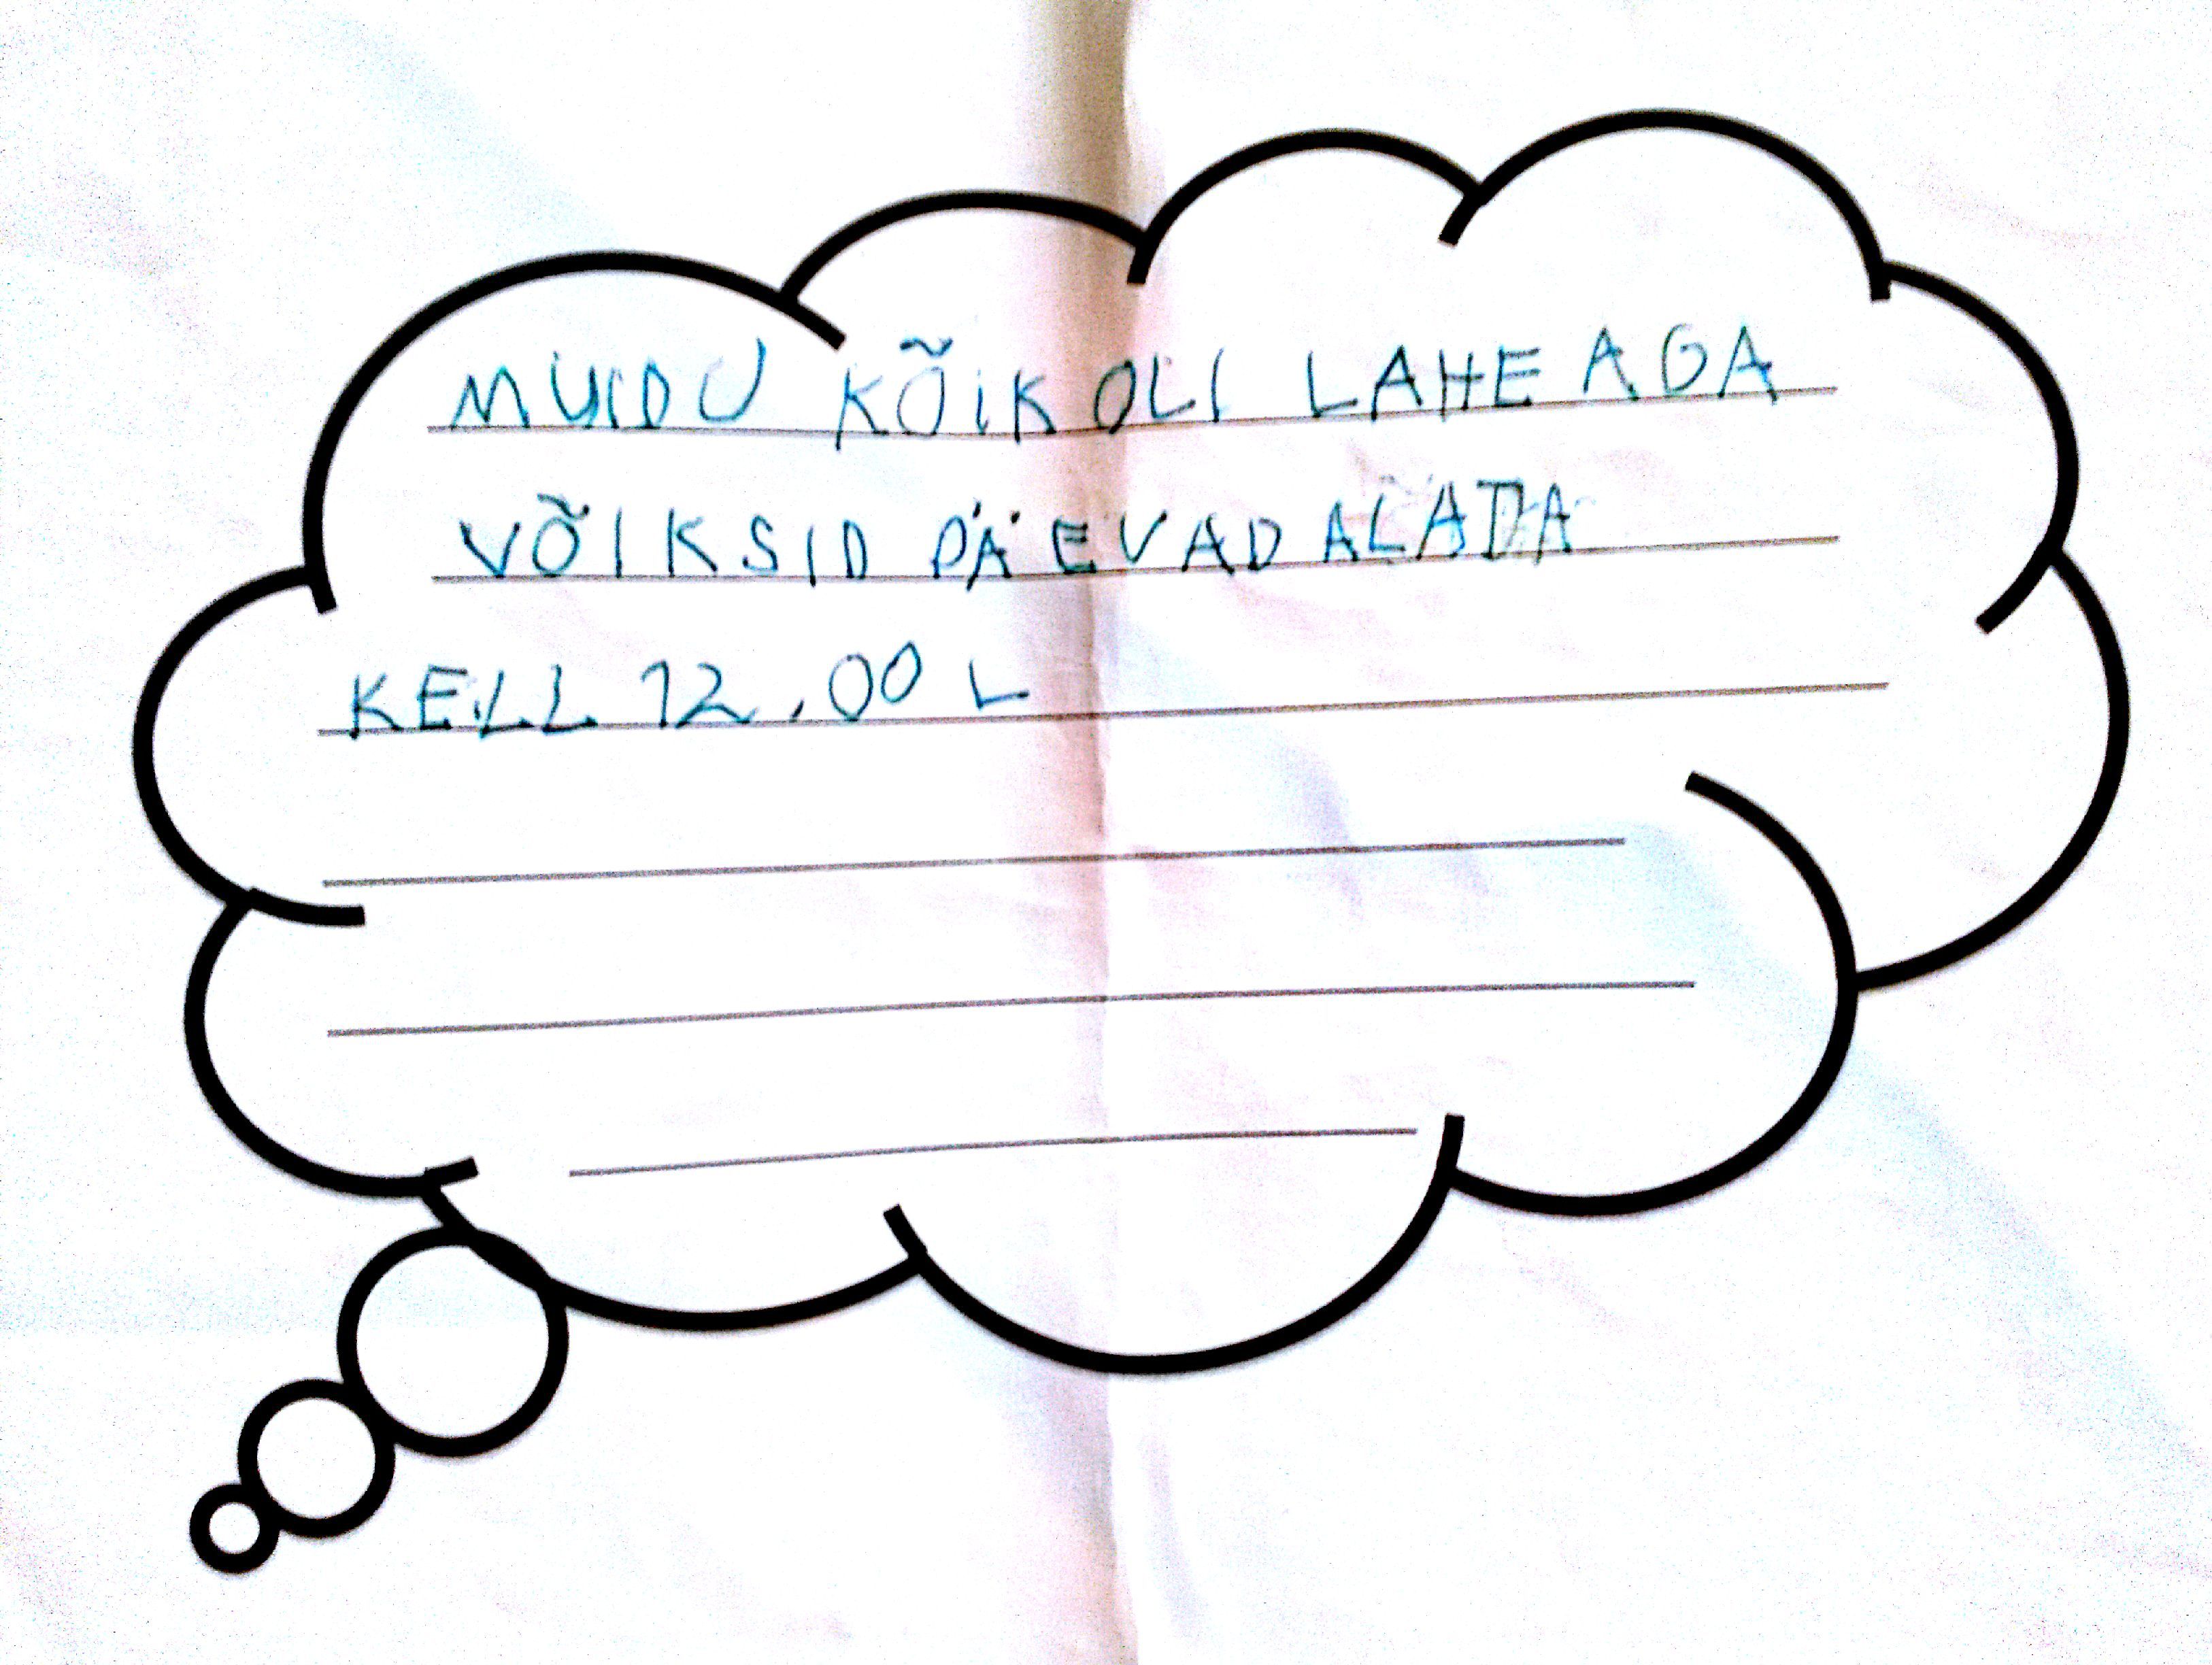 MUIDU KÕIK OLI LAHE AGA
VÕIKSID PÄEVAD ALATA
KELL 12.00 L